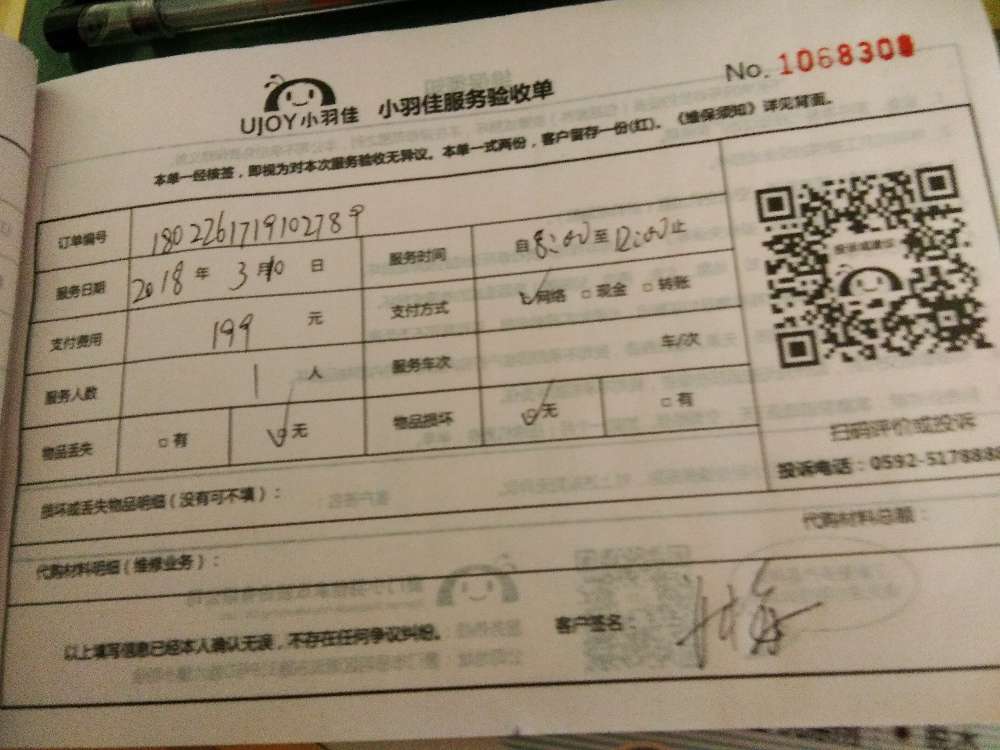 UJOY小羽佳 小羽佳服务验收单
No. 1068300
本单一经核签，即视为对本次服务验收无异议。本单一式两份，客户留存一份(红)。《维保须知》详见背面。
订单编号 1802261719102789
服务日期 2018年 3月10日 服务时间 自8:00至12:00止
支付费用 199 元 支付方式 ☑网络 □现金 □转账
服务人数 1 人 服务车次 车/次
物品丢失 □有 ☑无 物品损坏 ☑无 □有
扫码评价或投诉
投诉电话：0592-5178888
损坏或丢失物品明细（没有可不填）：
代购材料明细（维修业务）： 代购材料总额：
以上填写信息已经本人确认无误，不存在任何争议纠纷。 客户签名：